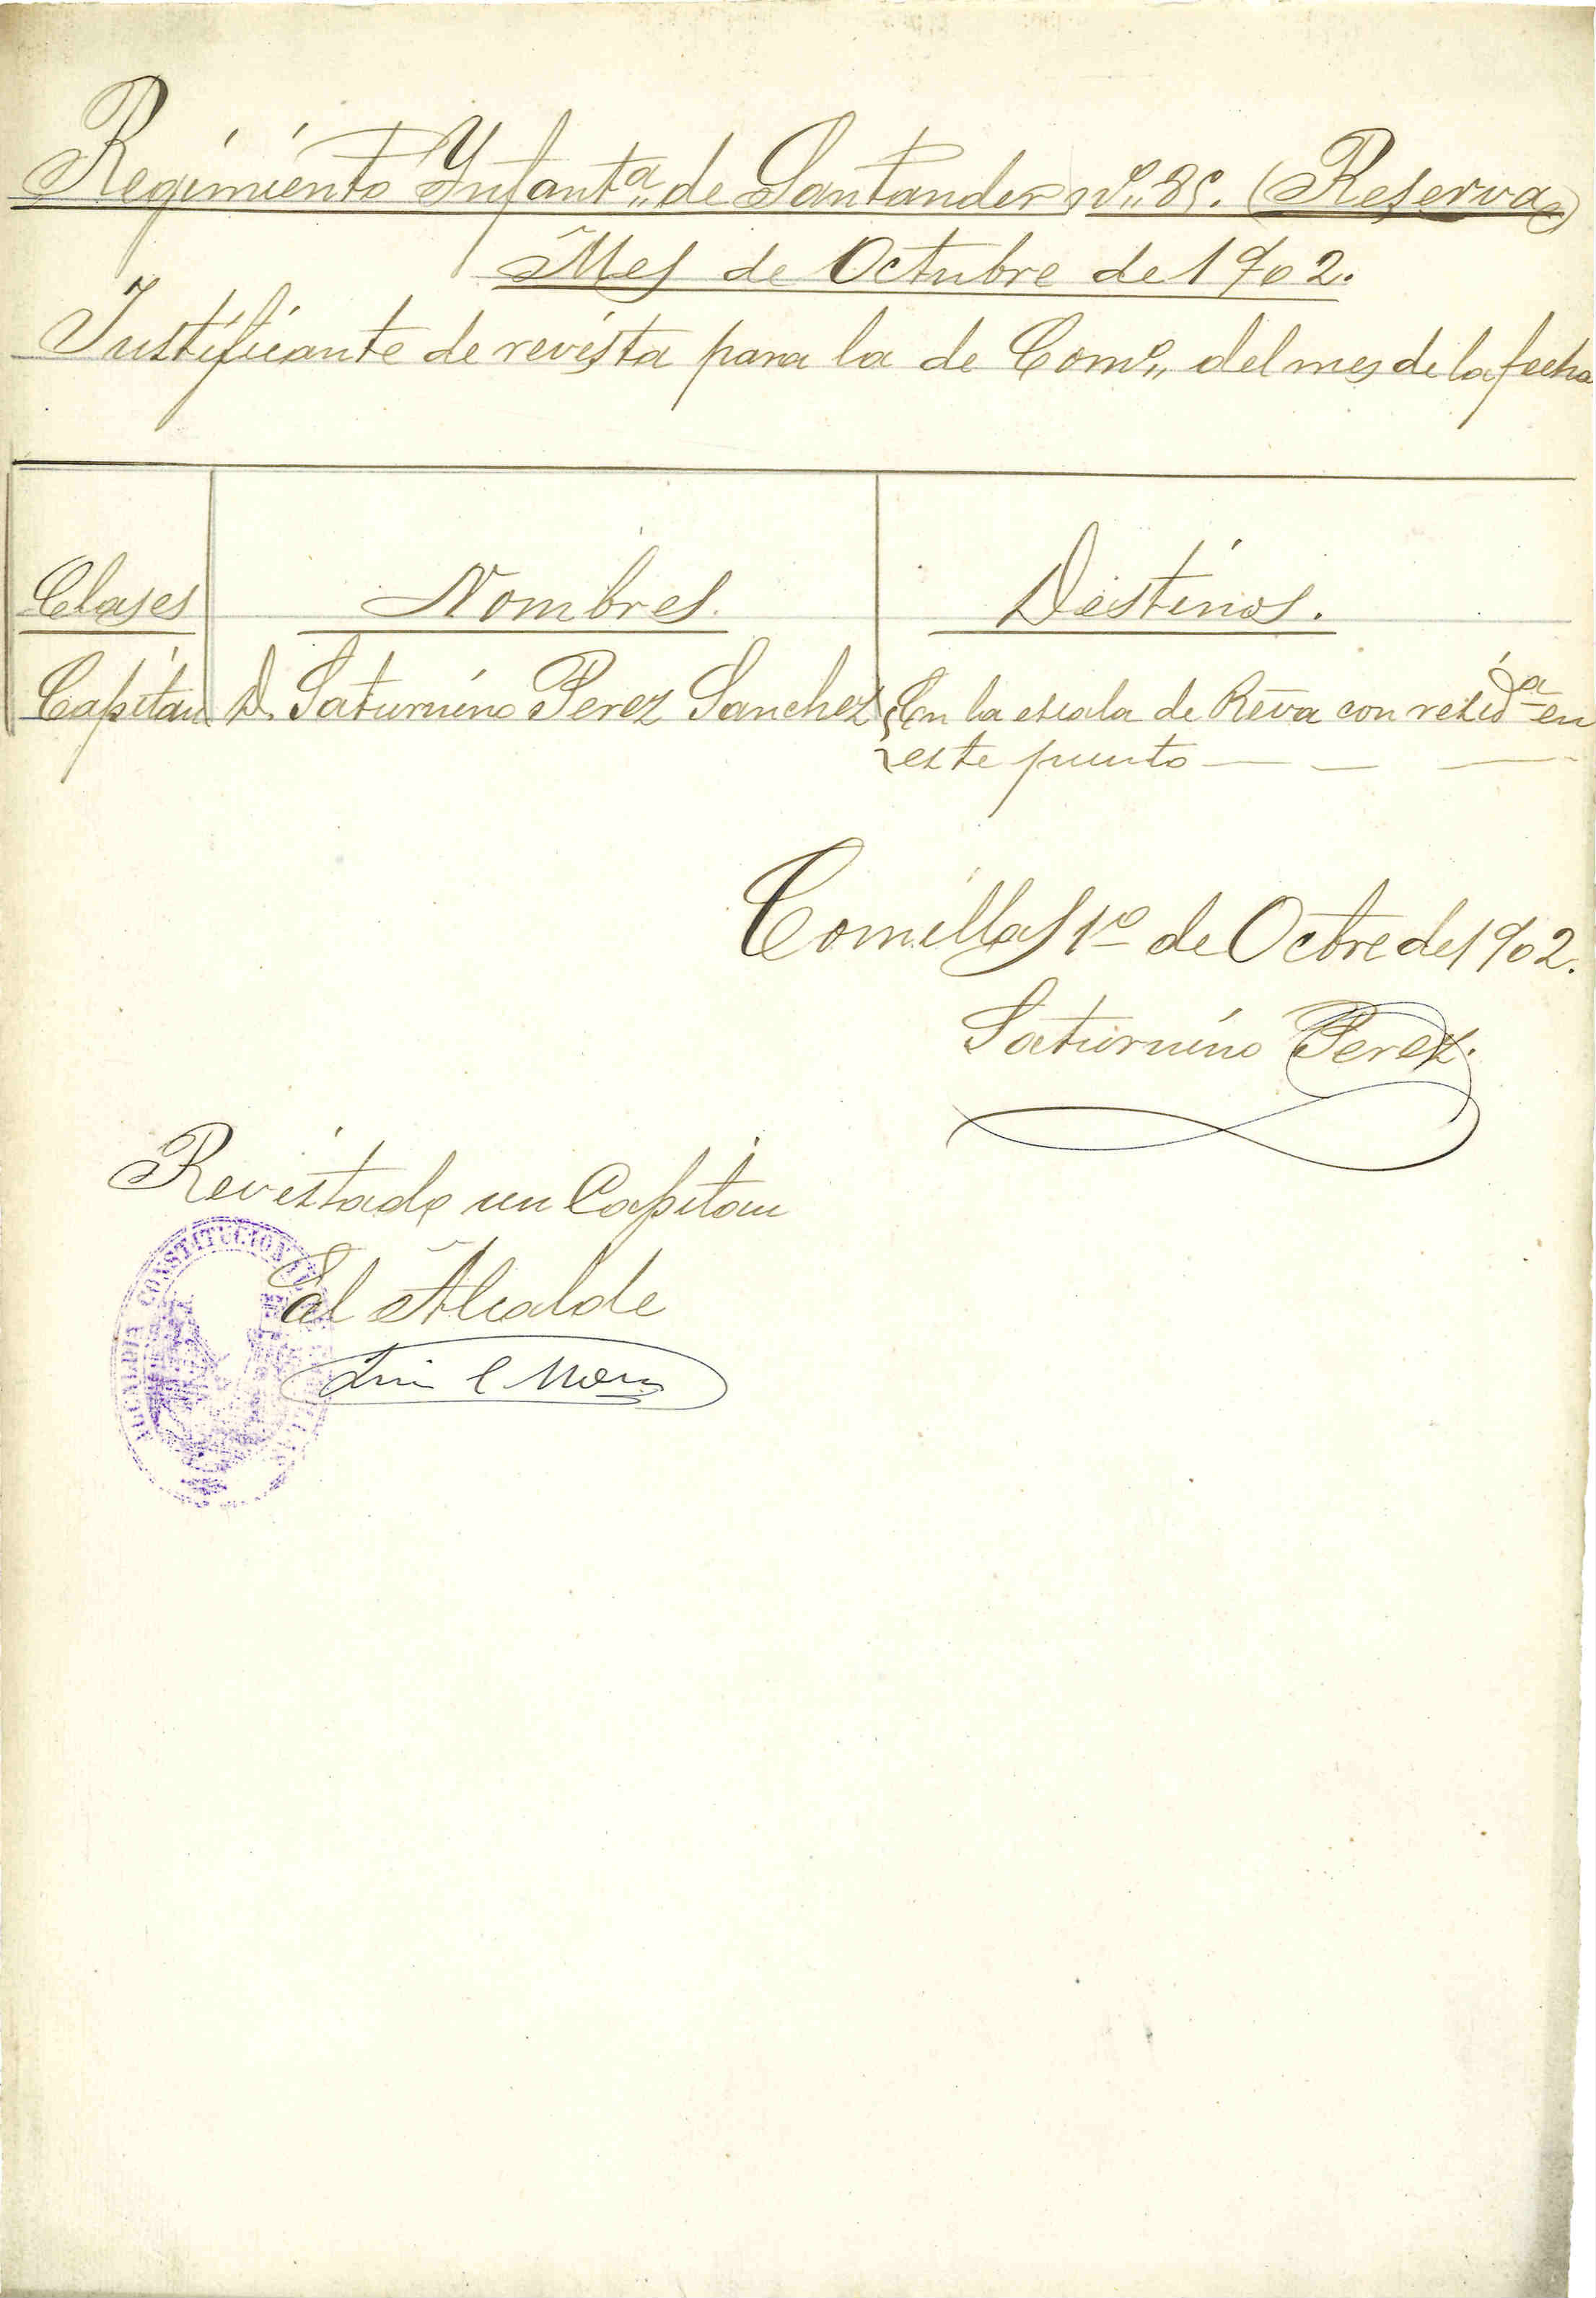 Regimiento Ynfantª de Santander nº 85. (Reserva)
Mes de Octubre de 1902.
Justificante de revista para la de Comº del mes de la fecha
Clases Nombres. Destinos.
Capitan D. Saturnino Perez Sanchez En la escala de Reva con residª en
este punto
Comillas 1º de Octbre de 1902.
Saturnino Perez.
Revistado un Capitan
El Alcalde
ALCALDIA CONSTITUCIONAL